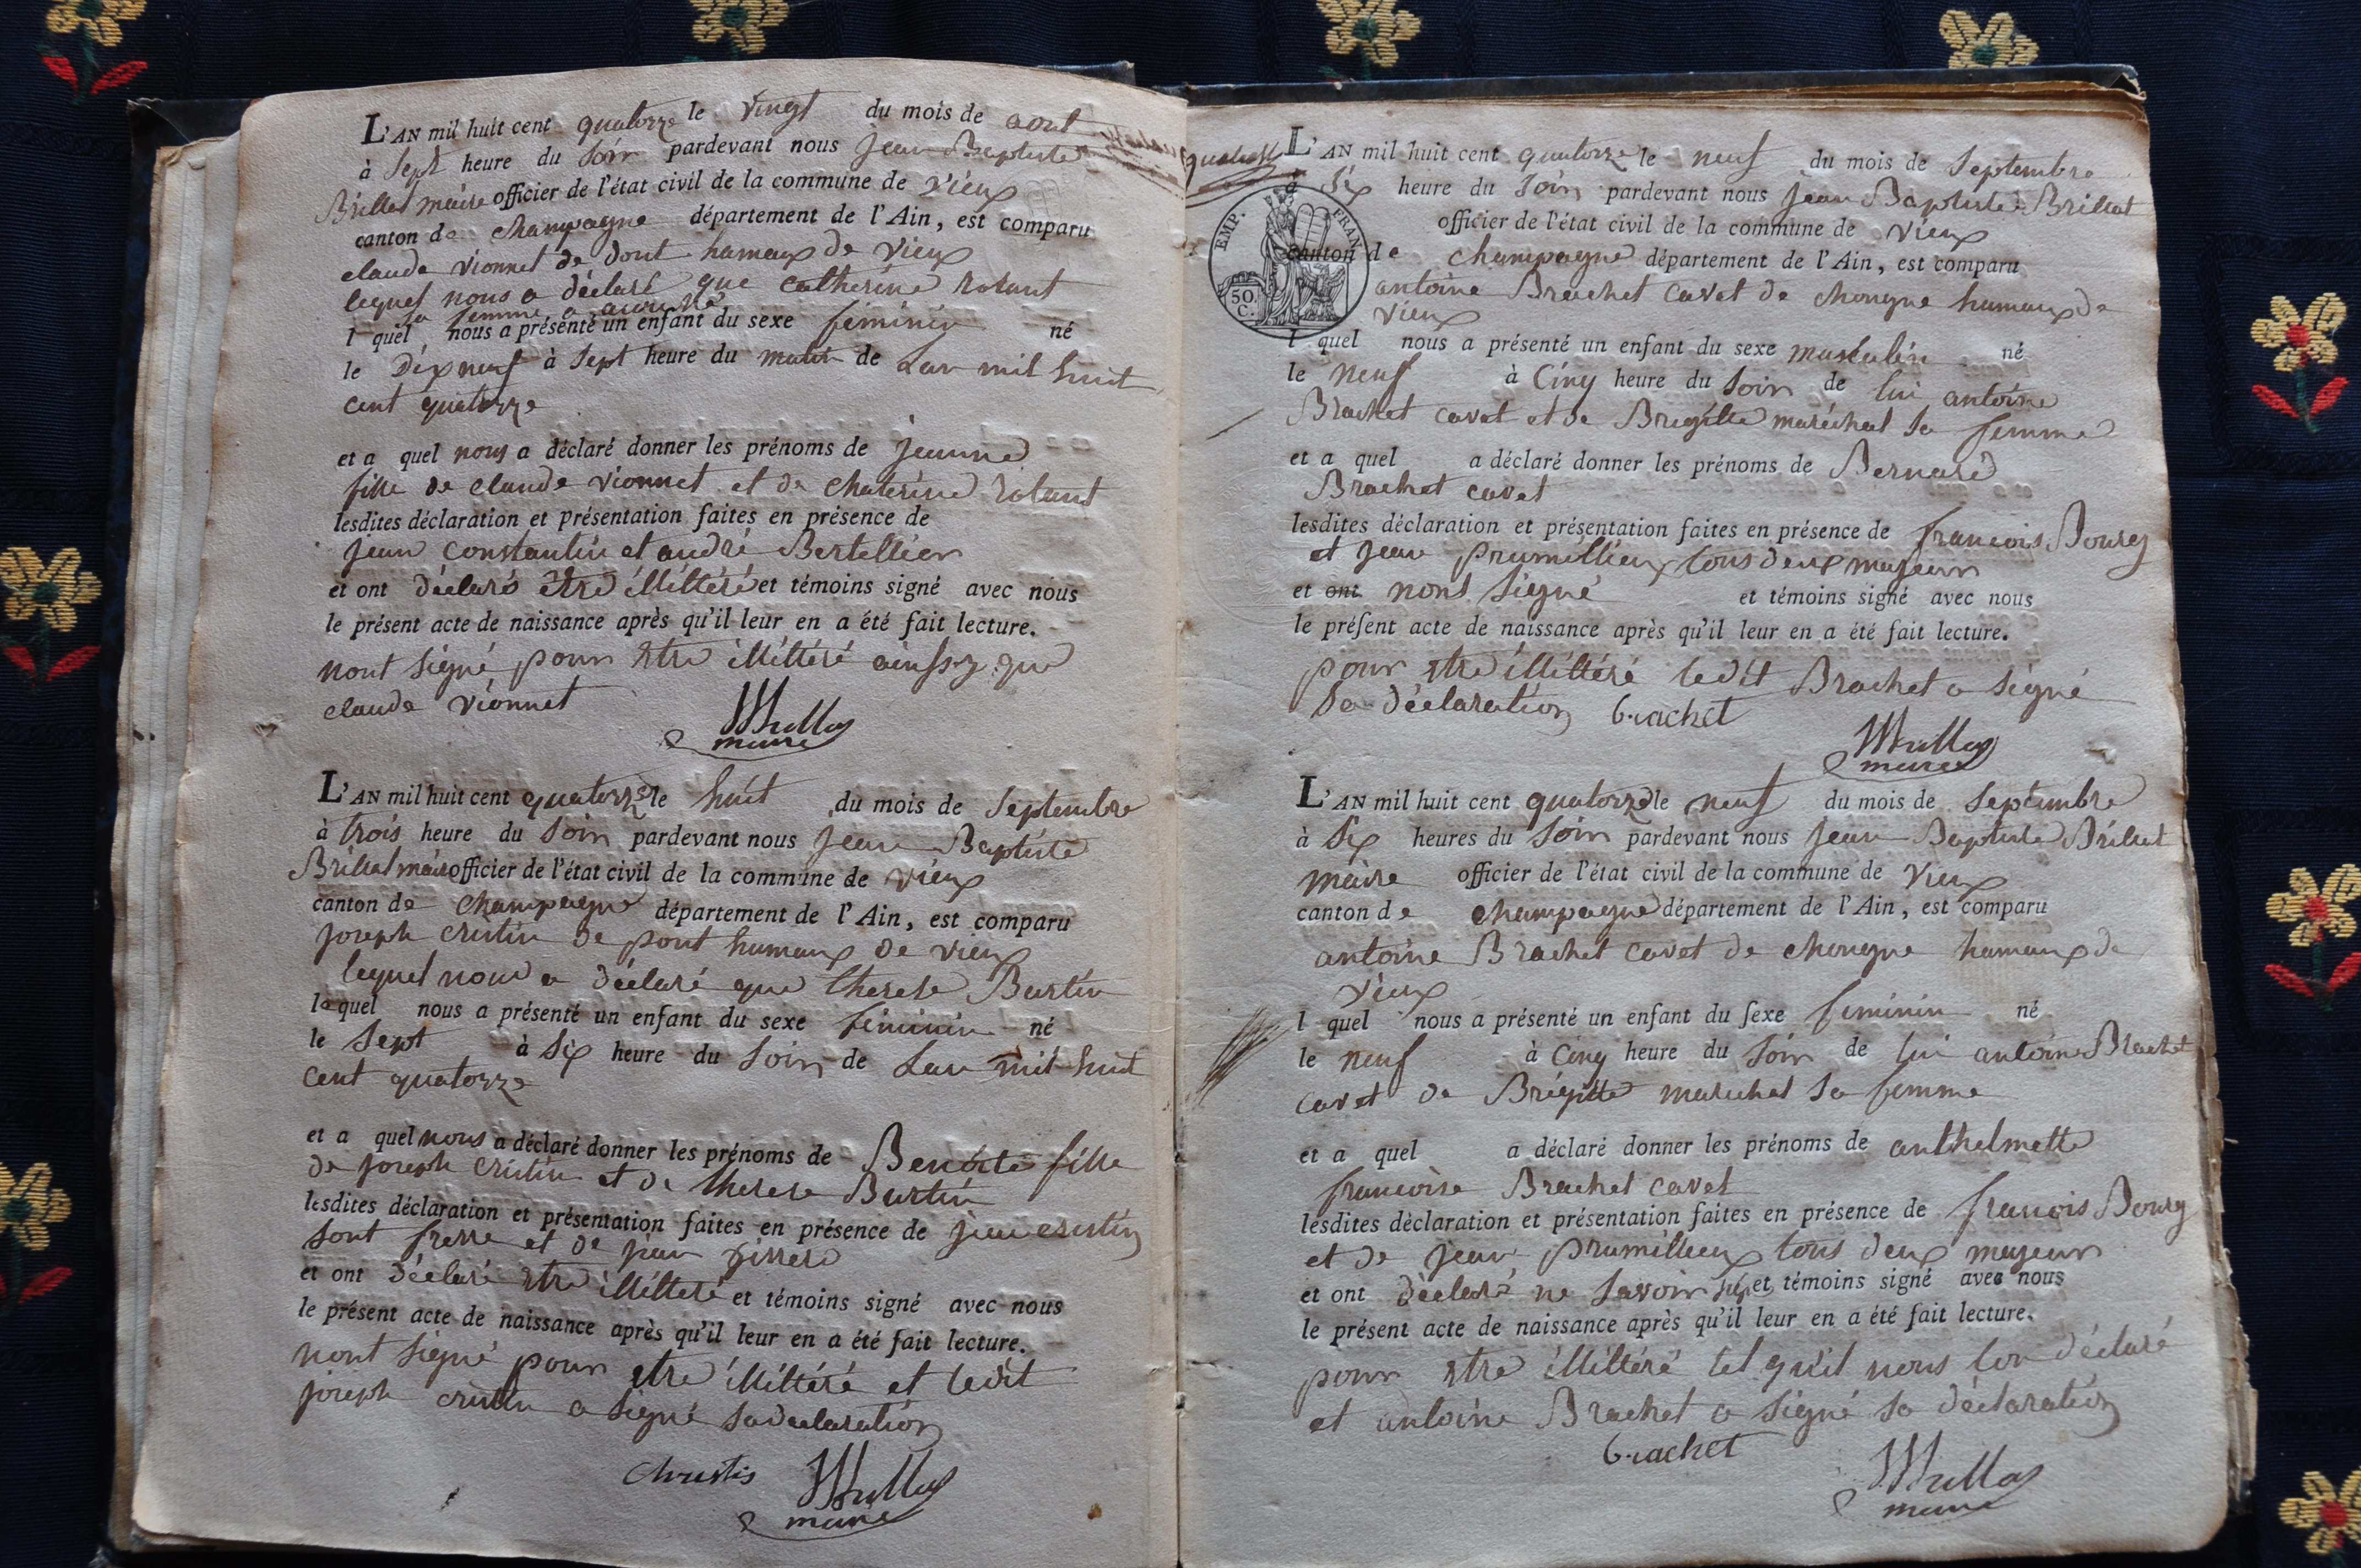 L'AN mil huit cent quatorze le vingt du mois de aout
à sept heure du soir pardevant nous jean Baptiste
Brillat maire officier de l'état civil de la commune de vieux
canton de champagne département de l'Ain, est comparu
claude vionnet de dont hameaux de vieux
lequel nous a déclaré que catherine rolant
sa femme a
l quel nous a présenté un enfant du sexe feminin né
le dixneuf à sept heure du matin de Lan mil huit
cent quatorze
et a quel nous a déclaré donner les prénoms de jeanne
fille de claude vionnet et de chaterine rolant
lesdites déclaration et présentation faites en présence de
jean constantin et andré Bertellier
et ont déclaré être illittéré et témoins signé avec nous
le présent acte de naissance après qu'il leur en a été fait lecture.
nont signé pour etre illittéré ainssy que
claude vionnet
maire
L'AN mil huit cent quatorze le huit du mois de septembre
à trois heure du soir pardevant nous jean Baptiste
Brillat maire officier de l'état civil de la commune de vieux
canton de champagne département de l'Ain, est comparu
joseph cristin de pont hameaux de vieux
lequel nous a déclaré que therese Burtin
lequel nous a présenté un enfant du sexe feminin né
le sept à six heure du soir de Lan mil huit
cent quatorze
et a quel nous a déclaré donner les prénoms de Benoite fille
de joseph cristin et de therese Burtin
lesdites déclaration et présentation faites en présence de jean cristin
sont frere et de jean
et ont déclaré etre illittéré et témoins signé avec nous
le présent acte de naissance après qu'il leur en a été fait lecture.
nont signé pour etre illittéré et ledit
joseph cristin a signé sa declaration
Christis
maire
L'AN mil huit cent quatorze le neuf du mois de septembre
à six heure du soir pardevant nous jean Baptiste Brillat
officier de l'état civil de la commune de vieux
canton de champagne département de l'Ain, est comparu
EMP. FRAN.
50. C.
antoine Brachet cavet de chongne hameaux de
vieux
l quel nous a présenté un enfant du sexe masculin né
le neuf à cinq heure du soir de lui antoine
Brachet cavet et de Brigitte maréchal sa femme
et a quel a déclaré donner les prénoms de Bernard
Brachet cavet
lesdites déclaration et présentation faites en présence de francois Bourg
et jean prumillieux tous deux majeur
et ont nont signé et témoins signé avec nous
le présent acte de naissance après qu'il leur en a été fait lecture.
pour etre illittéré ledit Brachet a signé
sa déclaration brachet
maire
L'AN mil huit cent quatorze le neuf du mois de septembre
à six heures du soir pardevant nous jean Baptiste Brillat
maire officier de l'état civil de la commune de vieux
canton de champagne département de l'Ain, est comparu
antoine Brachet cavet de chongne hameaux de
vieux
l quel nous a présenté un enfant du sexe feminin né
le neuf à cinq heure du soir de lui antoine Brachet
cavet de Brigitte marechal sa femme
et a quel a déclaré donner les prénoms de anthelmette
francoise Brachet cavet
lesdites déclaration et présentation faites en présence de francois Bourg
et de jean prumillieux tous deux majeur
et ont déclaré ne savoir et témoins signé avec nous
le présent acte de naissance après qu'il leur en a été fait lecture.
pour etre illittéré tel qu'il nous lon déclaré
et antoine Brachet a signé sa déclaration
brachet
maire